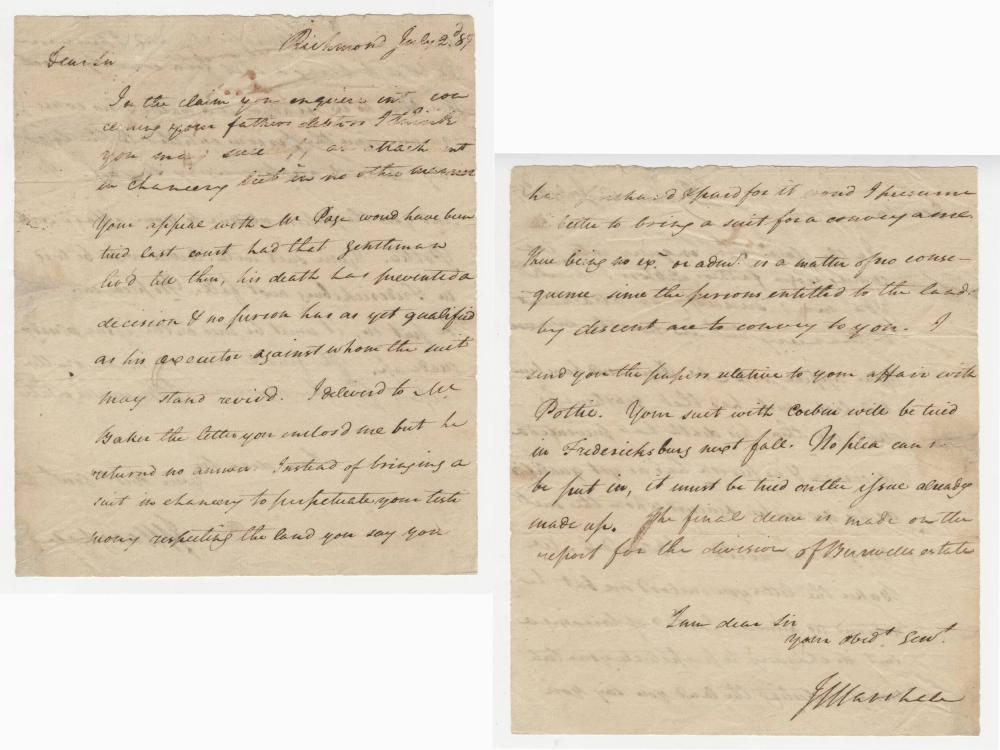 Richmond July 2.d 89
Dear Sir
In the claim you enquire into con
cerning your fathers I think
you may by an attachment
in chancery but in no other manner
Your appeal with Mr Page woud have been
tried last court had that gentleman
livd till then, his death has prevented a
decision & no person has as yet qualified
as his executor against whom the suit
may stand revivd. I deliverd to Mr
Baker the letter you enclosd me but he
returnd no answer. Instead of bringing a
suit in chancery to perpetuate your testi
mony respecting the land you say you
he & paid for it woud I presume
be better to bring a suit for a conveyance.
There being no exr. or admr. is a matter of no conse-
quence since the persons entitled to the land
by descent are to convey to you. I
send you the papers relative to your affair with
Pottie. Your suit with Corbin will be tried
in Fredericksburg next fall. No plea can
be put in, it must be tried on the issue already
made up. The final decree is made on the
report for the division of Burwells estate
I am dear Sir
your obedt. Servt.
J Marshall